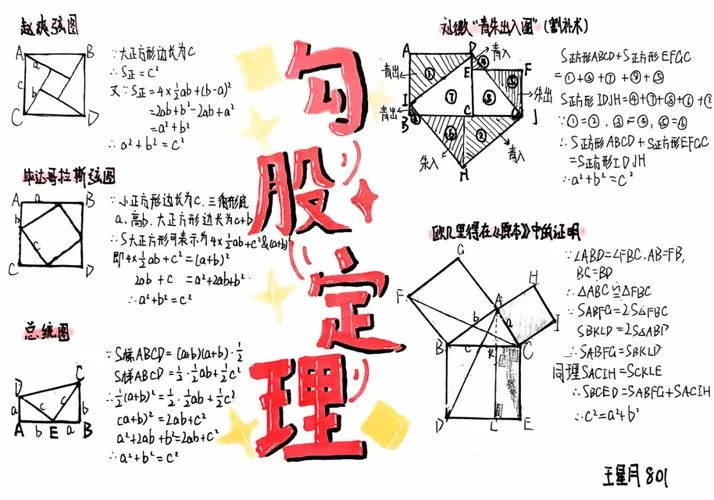 赵爽弦图
A
B
C
D
a
b
c
∵大正方形边长为c
∴S正=c²
又∵S正=4×½ab+(b-a)²
=2ab+b²-2ab+a²
=a²+b²
∴a²+b²=c²
毕达哥拉斯弦图
A
B
C
D
b
c
a
∵小正方形边长为c,三角形底
a,高b,大正方形边长为a+b
∴S大正方形可表示为4×½ab+c²&(a+b)²
即4×½ab+c²=(a+b)²
2ab+c=a²+2ab+b²
∴a²+b²=c²
总统图
D
C
a
c
c
b
A
b
E
a
B
∵S梯ABCD=(a+b)(a+b)·½
S梯ABCD=½·2ab+½c²
∴½(a+b)²=½·2ab+½c²
(a+b)²=2ab+c²
a²+2ab+b²=2ab+c²
∴a²+b²=c²
勾股定理
刘徽“青朱出入图”(割补术)
A
D
青入
青出
①
E
F
②
③
朱出
I
⑦
青出
B
C
J
朱入
青入
H
S正方形ABCD+S正方形EFGC
S正方形IDJH
∴S正方形ABCD+S正方形EFGC
=S正方形IDJH
∴a²+b²=c²
欧几里得在《原本》中的证明
G
H
F
A
I
b
a
B
c
K
C
D
L
E
∵∠ABD=∠FBC,AB=FB,
BC=BD
∴△ABC≌△FBC
∵SABFG=2S△FBC
SBKLD=2S△ABD
∴SABFG=SBKLD
同理SACIH=SCKLE
∴SBCED=SABFG+SACIH
∴c²=a²+b²
王星月 801